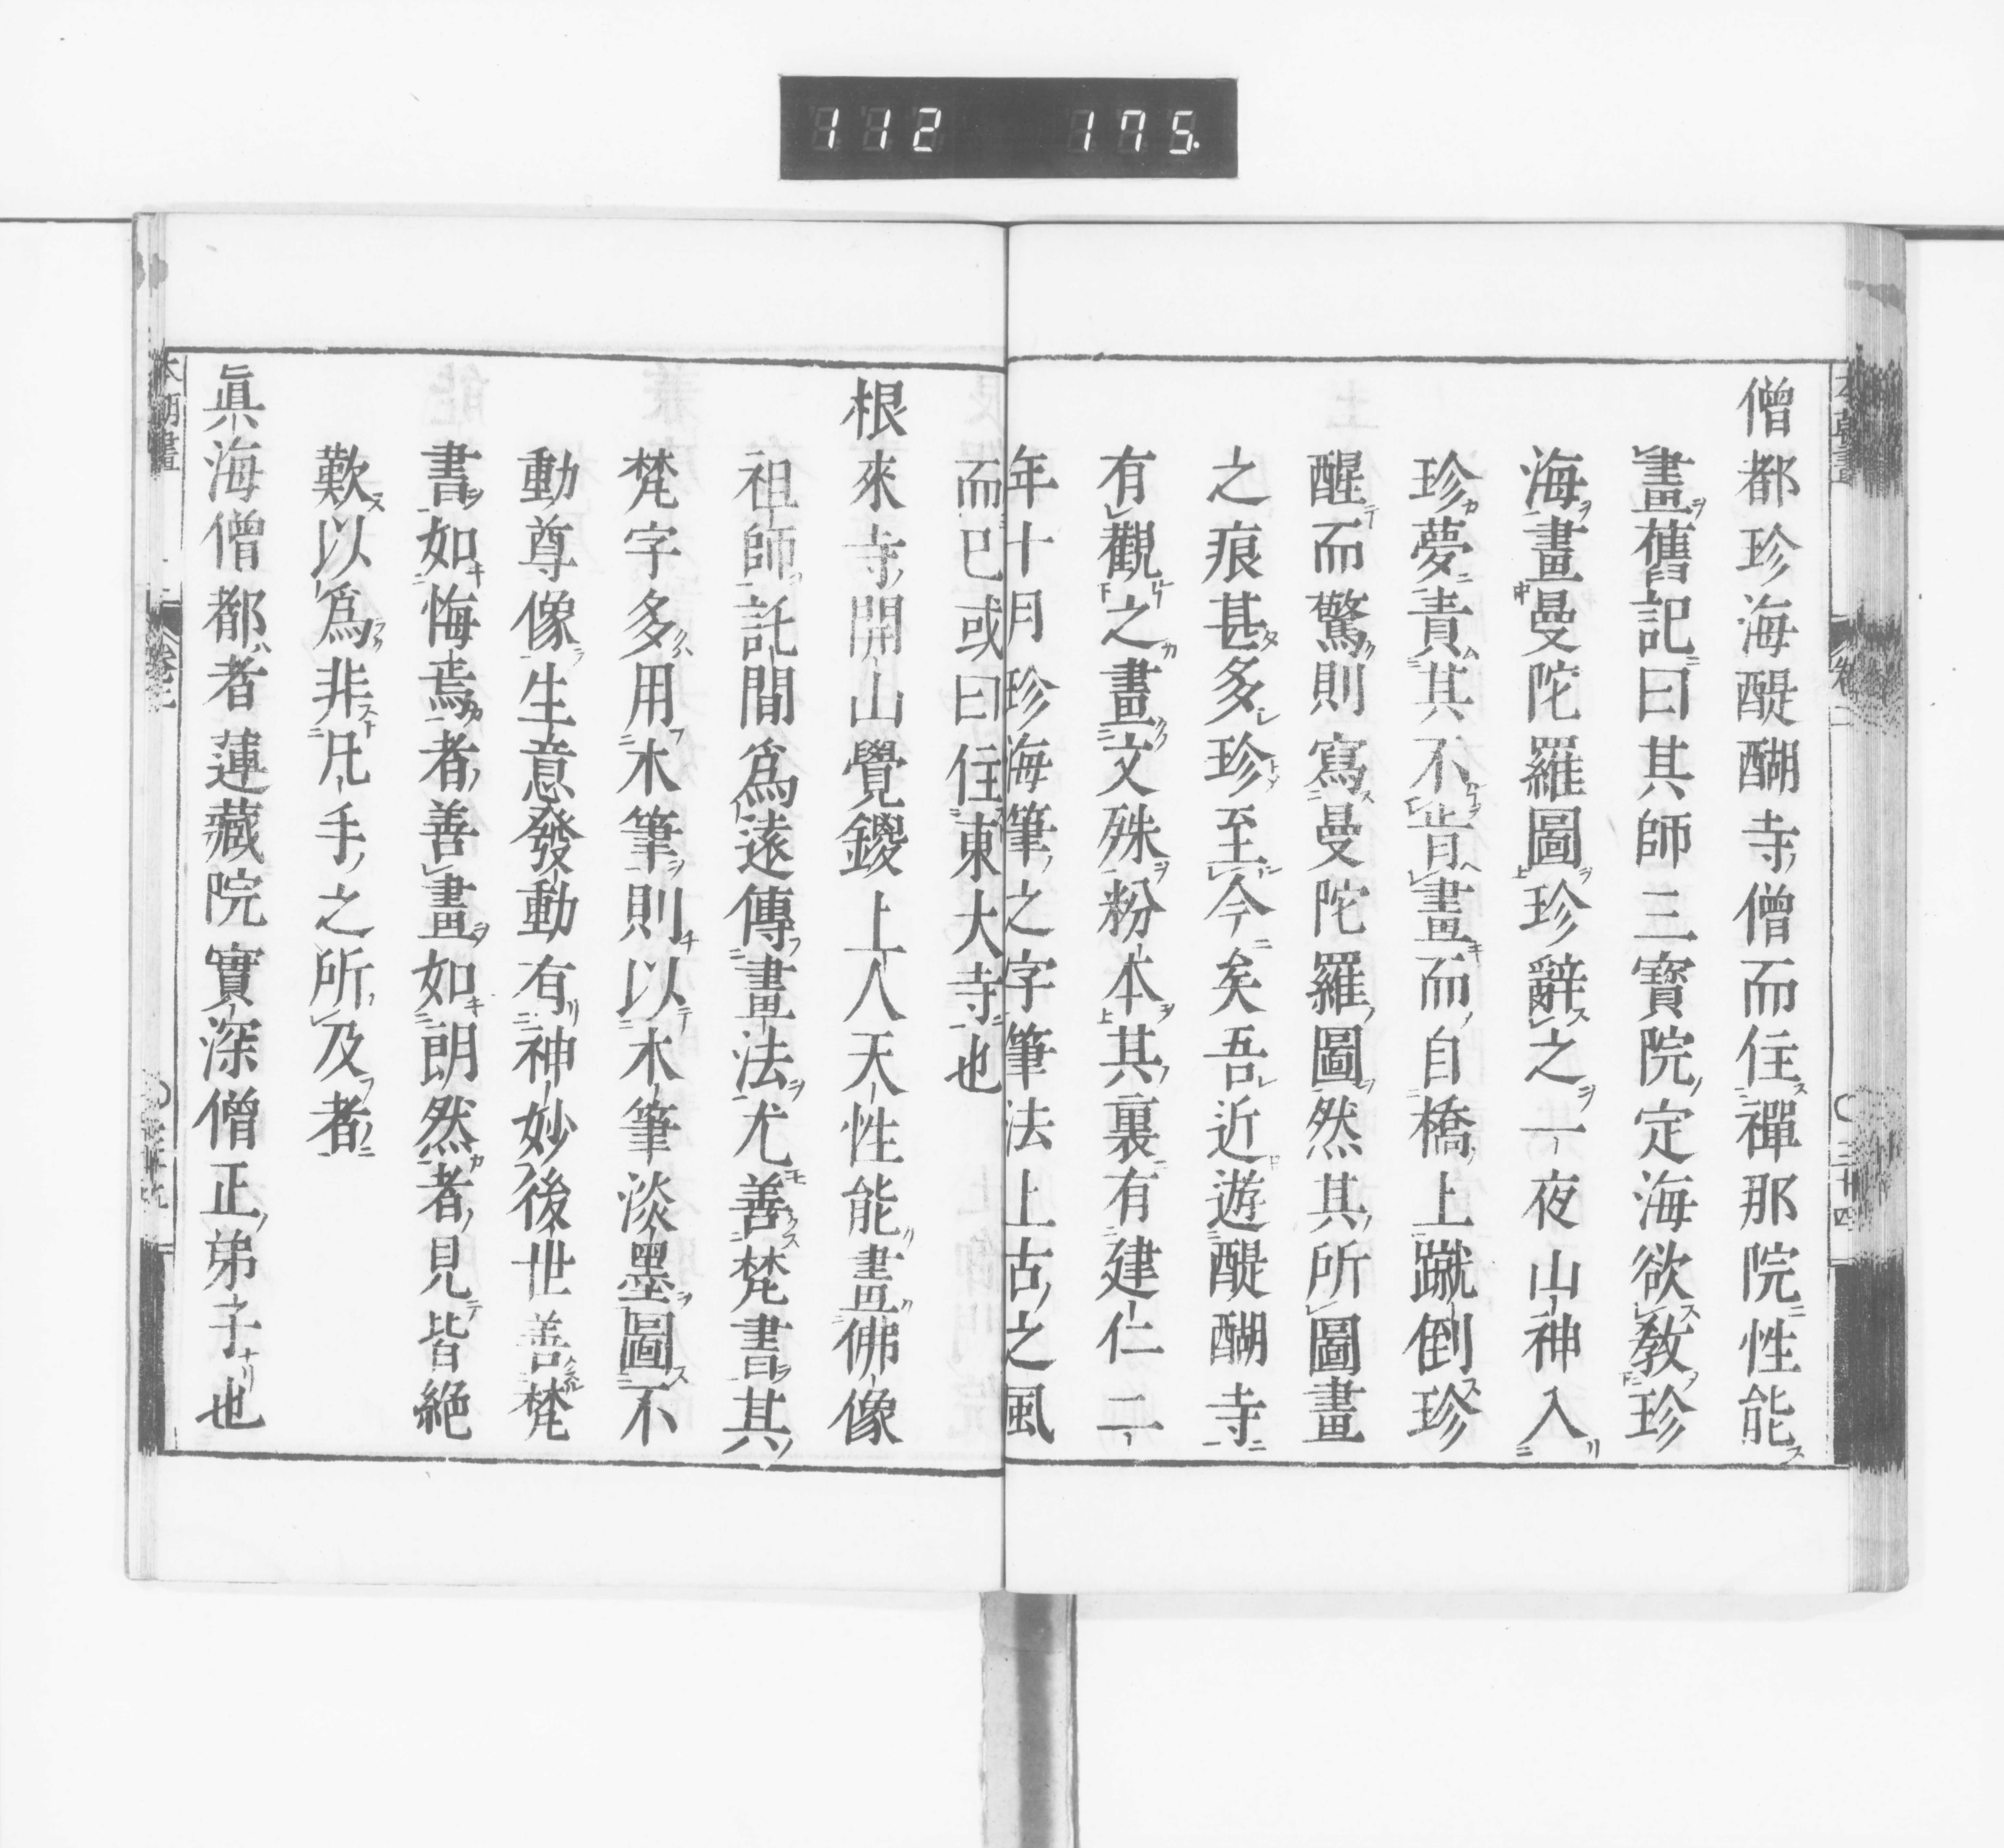 112 175.
僧都珍海醍醐寺僧而住禪那院性能
畫舊記曰其師三寳院定海欲教珍
海畫曼陀羅圖珍辭之一夜山神入
珍夢責其不肯畫而自橋上蹴倒珍
醒而驚則寫曼陀羅圖然其所圖畫
之痕甚多珍至今矣吾近遊醍醐寺
有觀之畫文殊粉本其裏有建仁二
年十月珍海筆之字筆法上古之風
而已或曰住東大寺也
根來寺開山覺鑁上人天性能畫佛像
祖師託間爲遠傳畫法尤善梵書其
梵字多用木筆則以木筆淡墨圖不
動尊像生意發動有神妙後世善梵
書如悔焉者善畫如朗然者見皆絶
歎以爲非凡手之所及者
眞海僧都者蓮藏院實深僧正弟子也
本朝畫